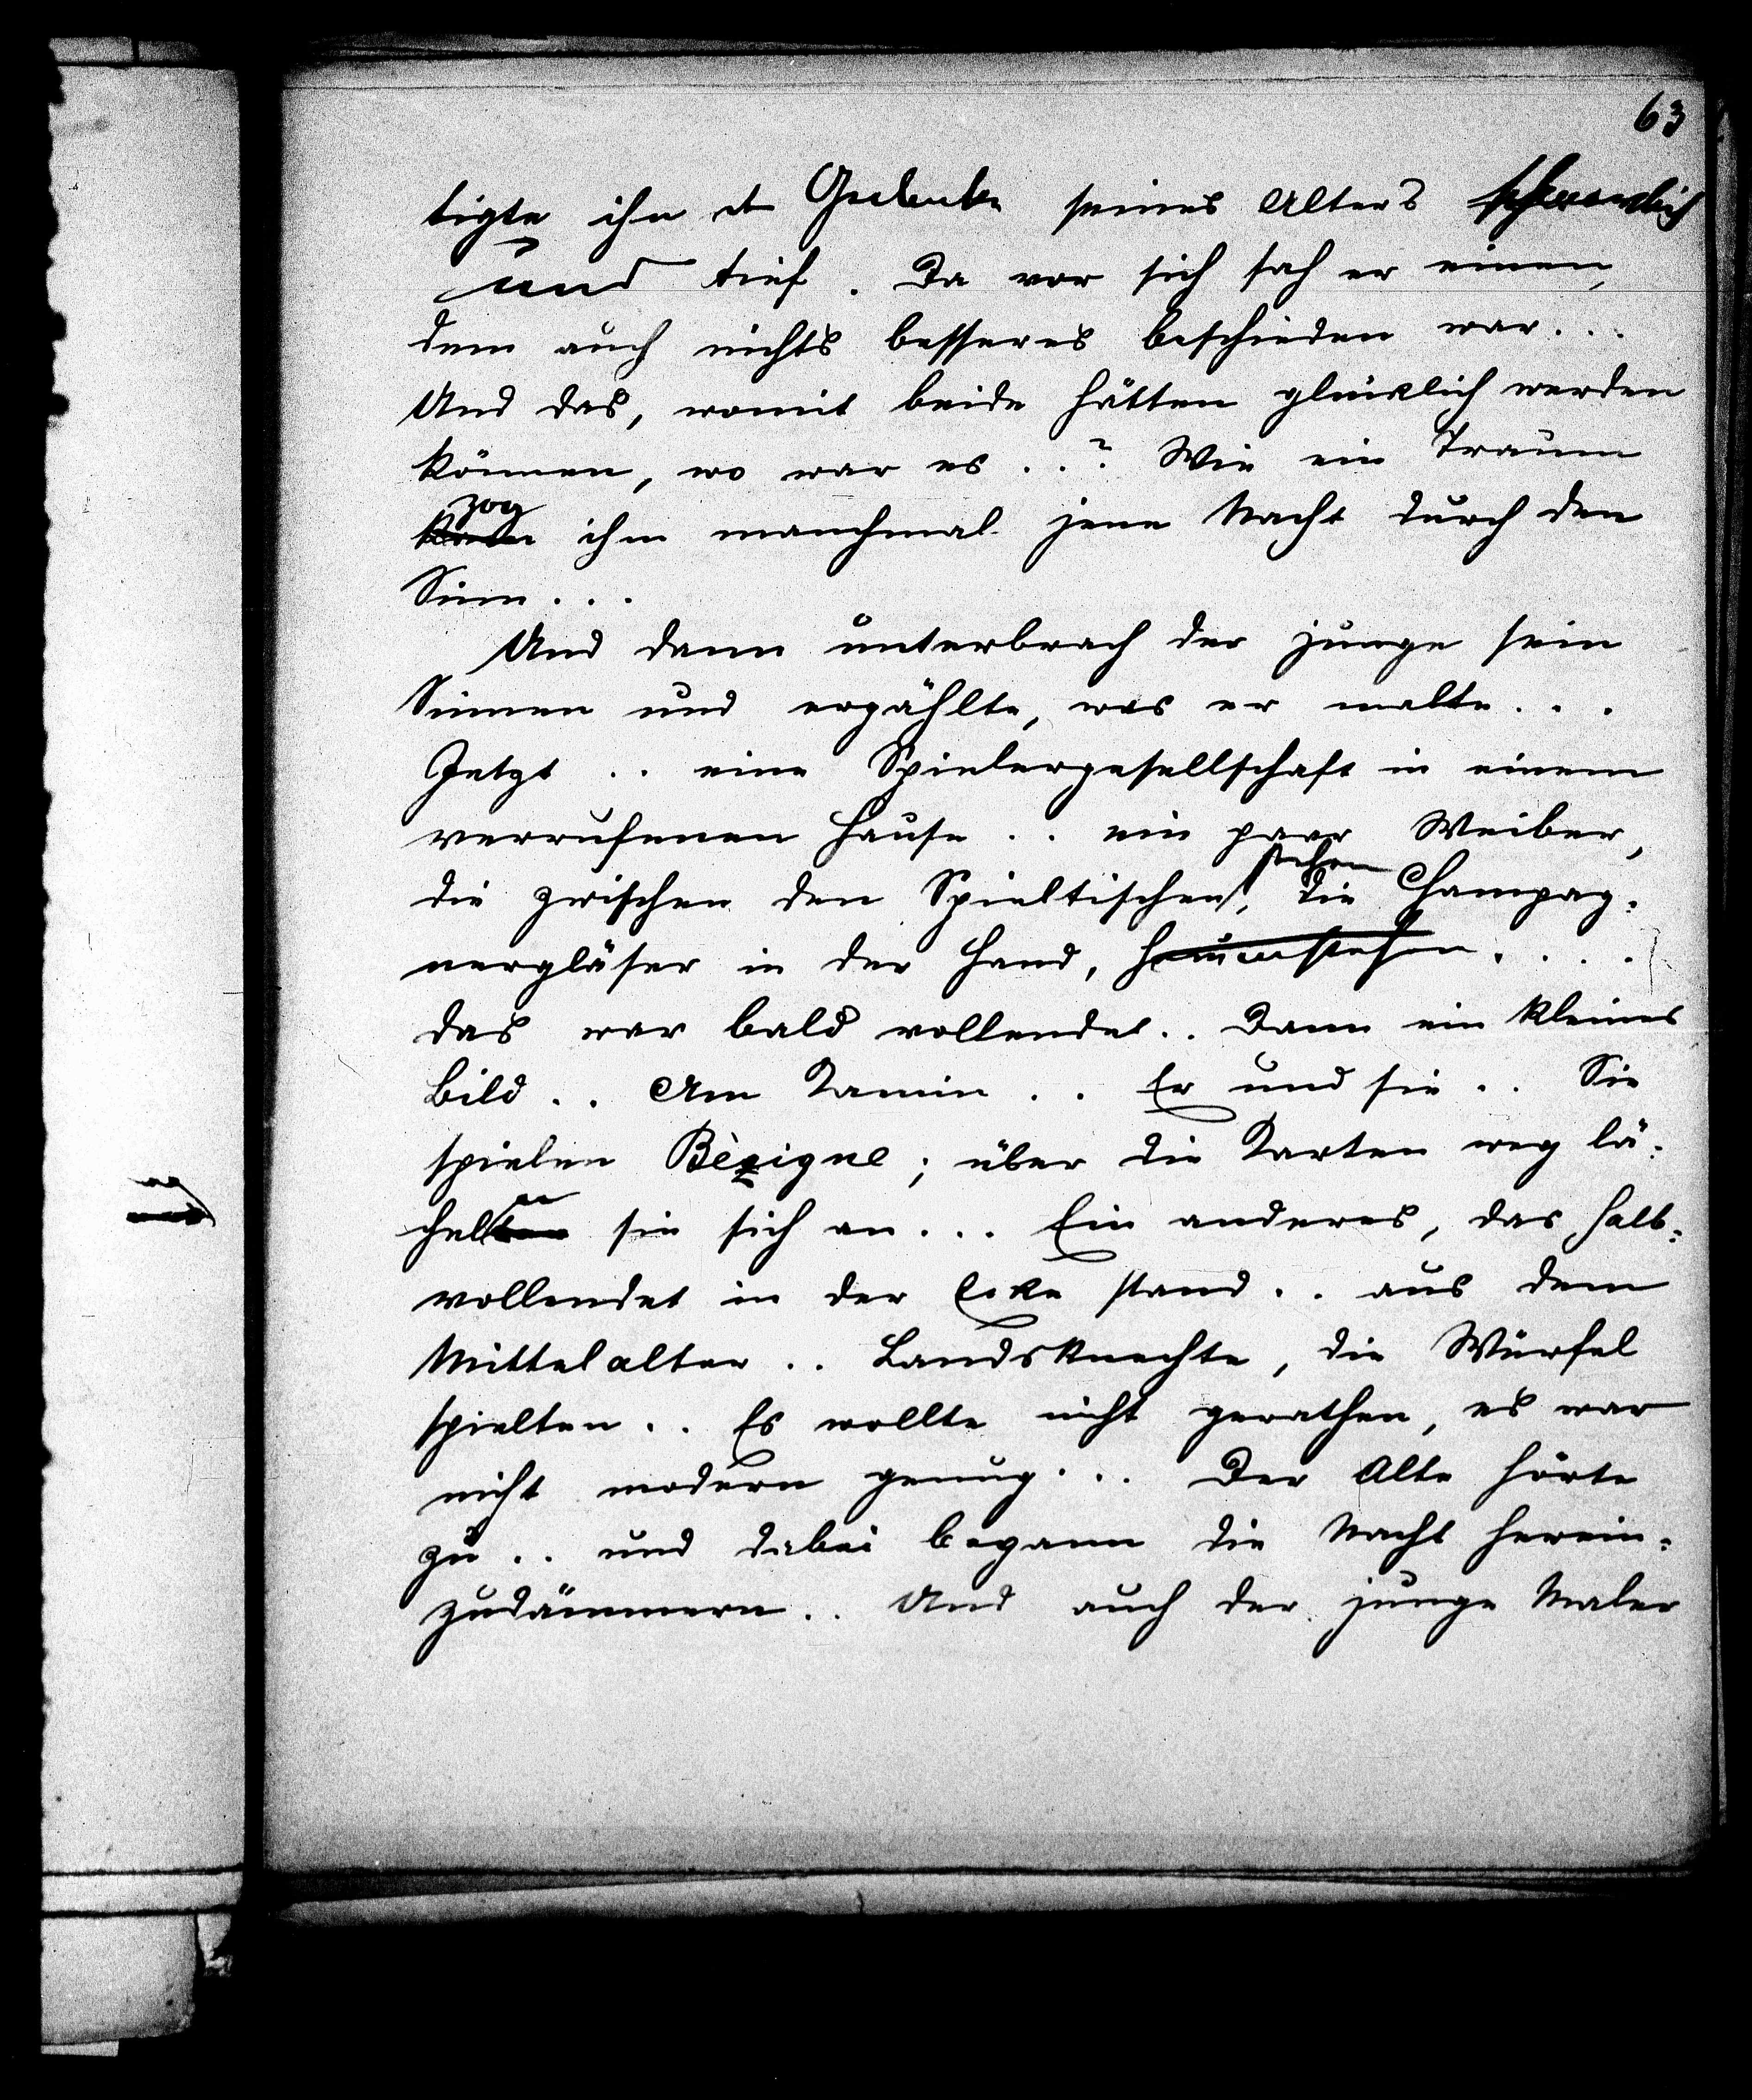 63
tigte ihn d Gedanke seines Alters
und tief. Da vor sich sah er einen,
dem auch nichts besseres beschieden war...
Und das, womit beide hätten glücklich werden
können, wo war es..? Wie ein Traum
zog
kam ihm manchmal jene Nacht durch den
Sinn...
Und dann unterbrach der junge sein
Sinnen und erzählte, was er malte...
Jetzt .. eine Spielergesellschaft in einem
verrufenen Hause .. ein paar Weiber,
stehen
die zwischen den Spieltischen, die Champag=
nergläser in der Hand, herumstehen....
das war bald vollendet.. Dann ein kleines
Bild .. Am Kamin .. Er und sie .. Sie
spielen Bèzigue; über die Karten weg lä=
n
chelten sie sich an... Ein anderes, das halb=
vollendet in der Ecke stand .. aus dem
Mittelalter .. Landsknechte, die Würfel
spielten .. Es wollte nicht gerathen, es war
nicht modern genug... Der Alte hörte
zu .. und dabei begann die Nacht herein=
zudämmern.. Und auch der junge Maler